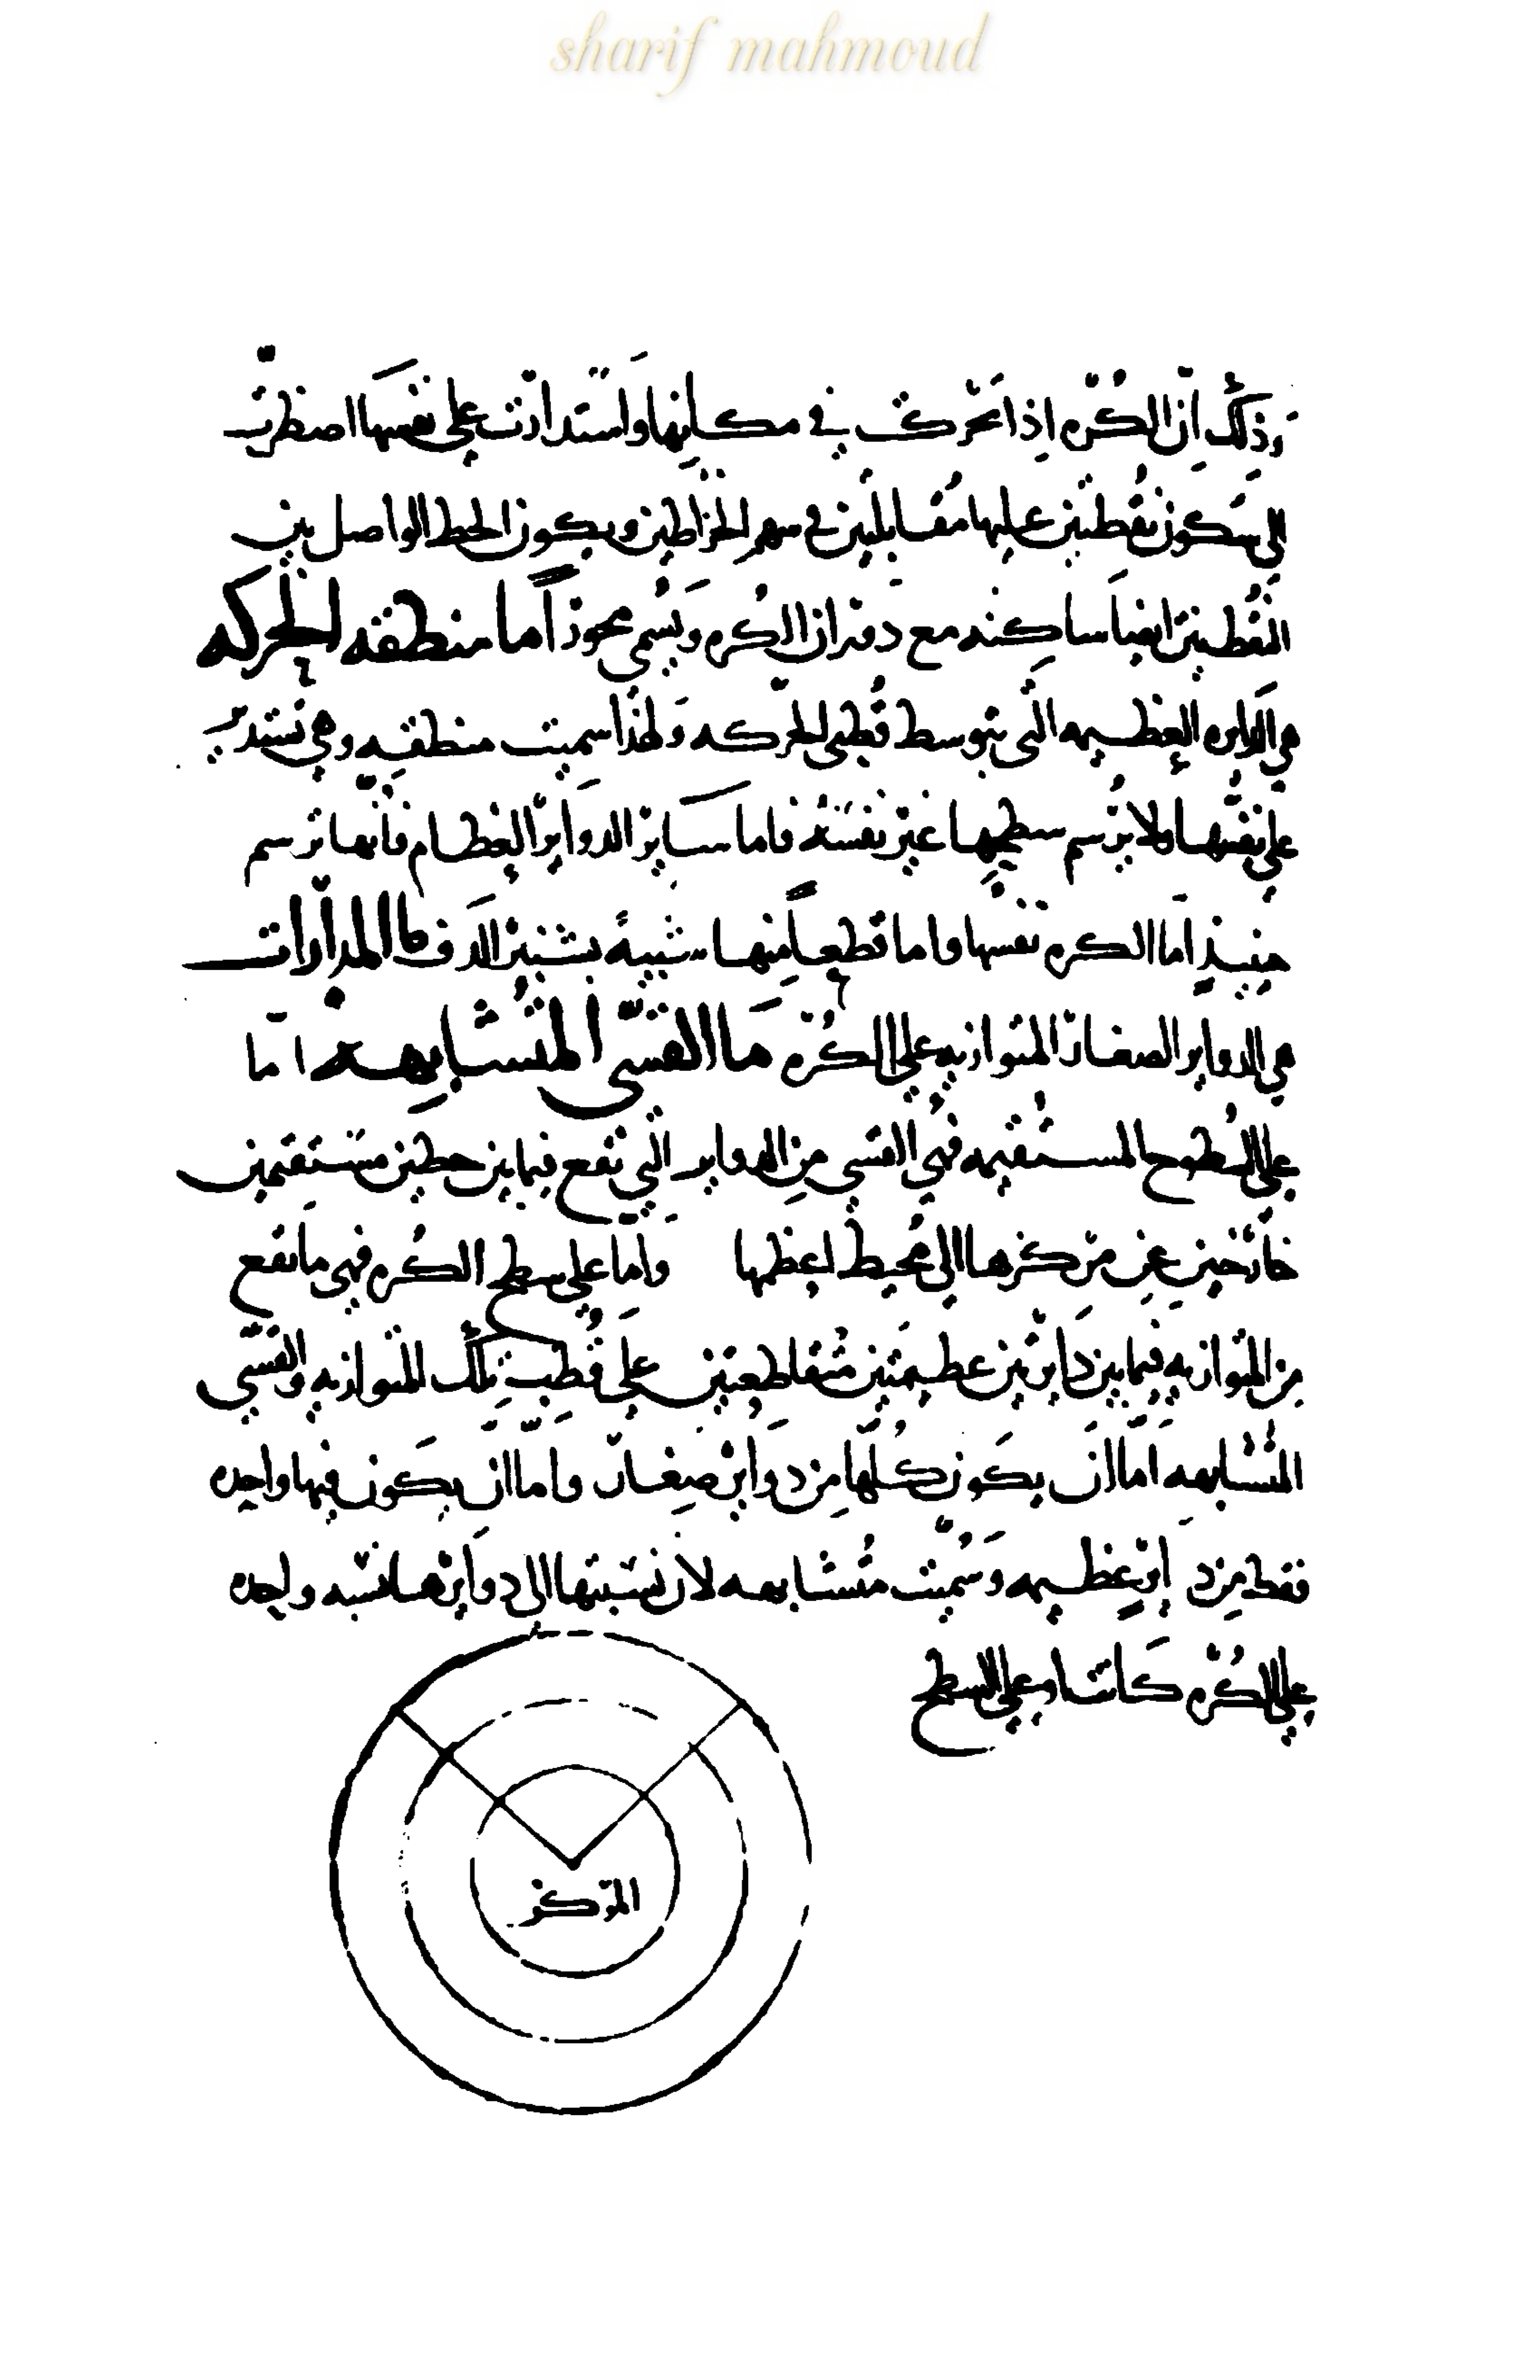 sharif mahmoud
وذلك أن الكره إذا تحركت في مكانها واستدارت على نفسها اضطرت
إلى سكون نقطتين عليها مقابلتين في سهم الخراطين ويكون الخط الواصل بين
النقطتين ايضا ساكنه مع دوران الكره ويسمى محورا ما منطقه الحركه
هي الدايره العظيمه التي تتوسط قطبي الحركه ولهذا سميت منطقه وهي تستدير
على نفسها ولا يرسم سطحها غير نفسه فاما ساير الدواير العظام فانها ترسم
حينيذ اما الكره نفسها واما قطعا منها شبيهة بشنبر الدف ما المدارات
هي الدواير الصغار المتوازيه على الكره ما القسي المتشابهه اما
على السطوح المستقيمه فهي القسي من الدواير التي تقع فيما بين خطين مستقيمين
خارجين عن مركزها الى محيط اعظمها واما على سطح الكره فهي ما تقع
من المتوازيه فيما بين دايرتين عظيمتين متقاطعتين على قطب تلك المتوازيه والقسي
المتشابهه اما ان يكون كلها من دواير صغار واما ان يكون فيها واحده
فقط من د اير عظيمه وسميت متشابهه لان نسبتها الى دوايرها نسبه واحده
على الكره كانت او على السطح
المركز